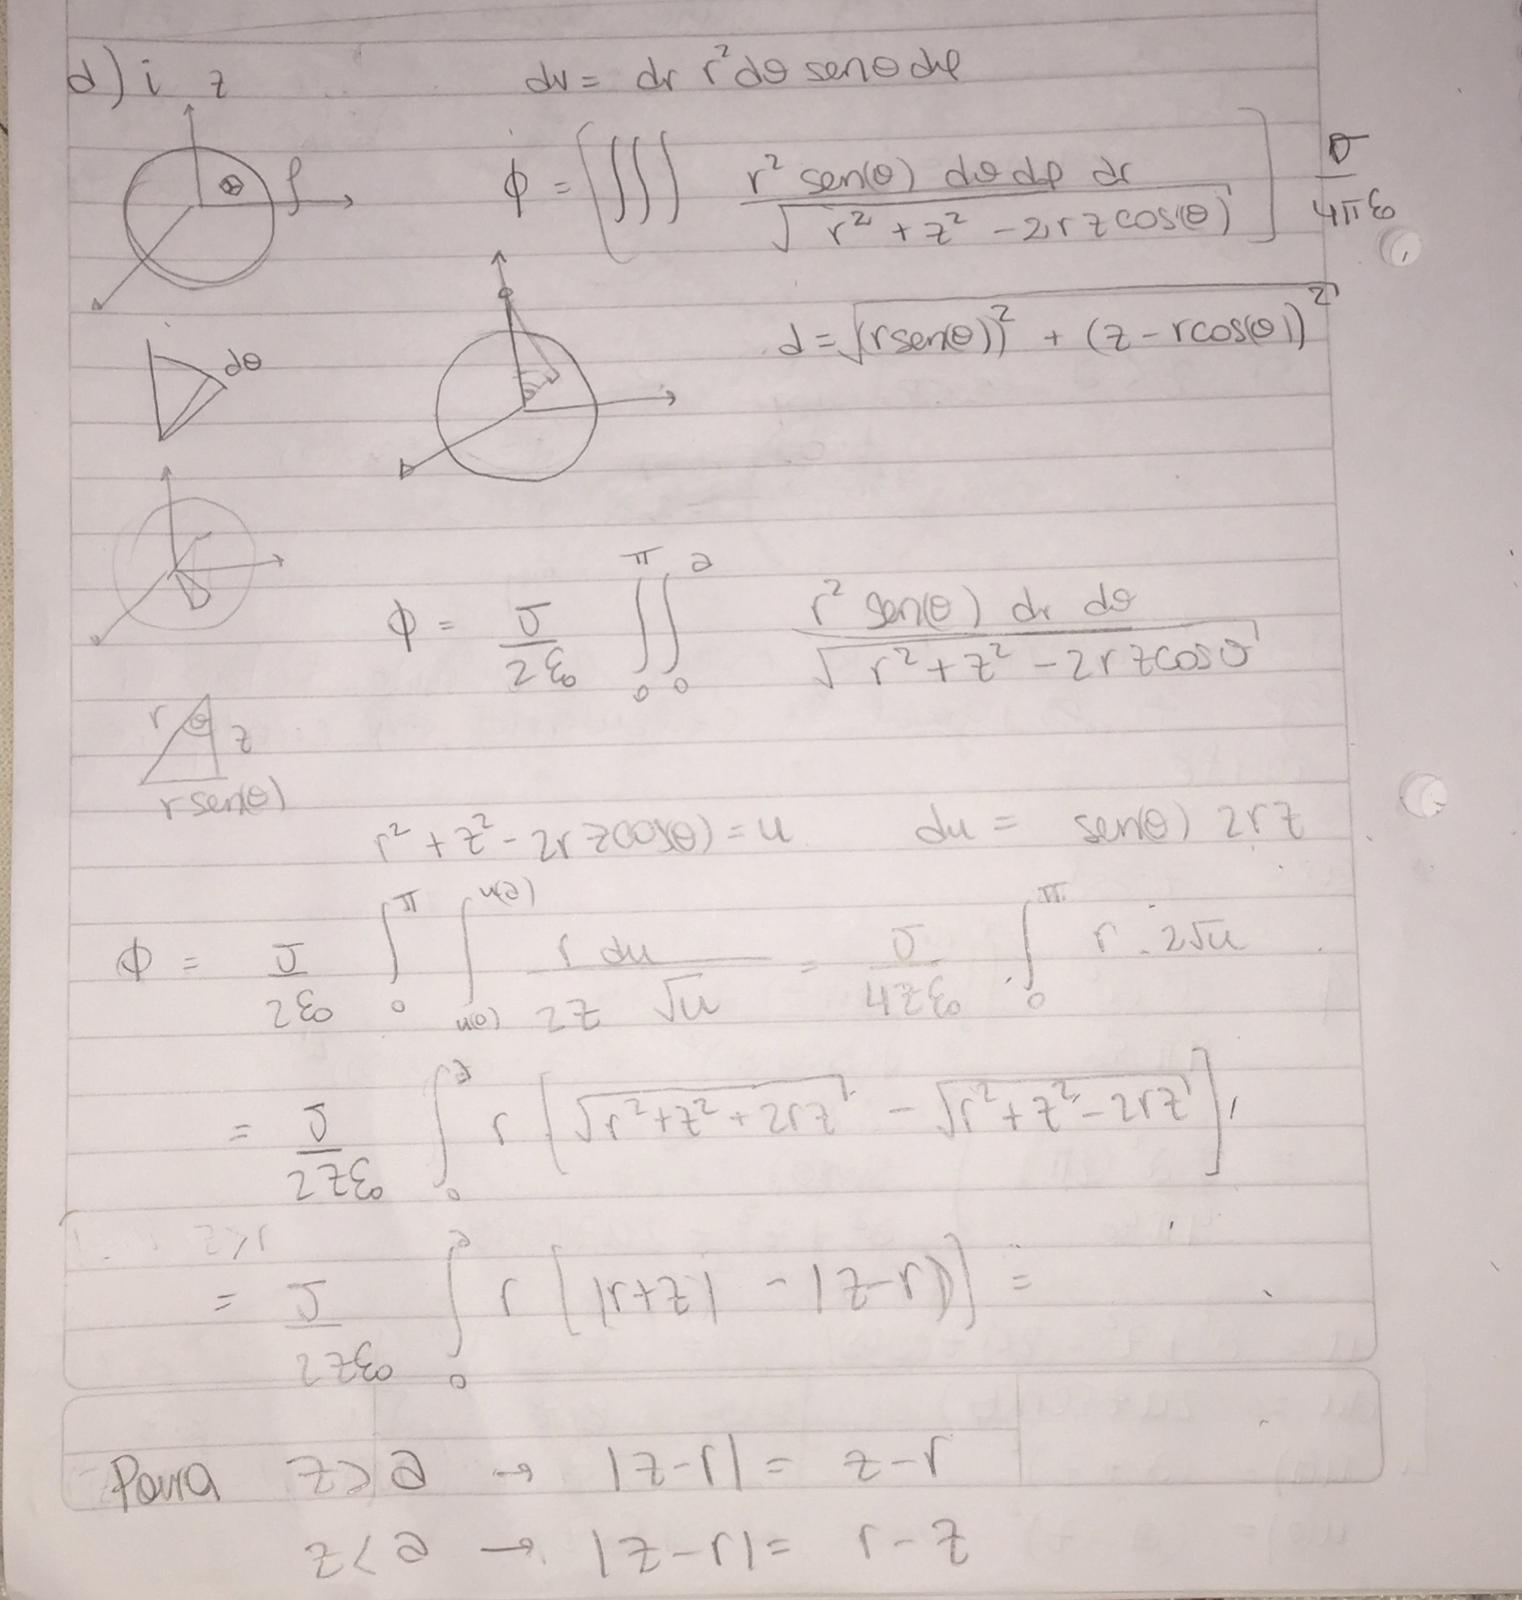 d) i z dv = dr r² dθ senθ dφ
φ = [∭ r² sen(θ) dθ dφ dr / √(r² + z² - 2rzcos(θ))] σ / 4πε₀
ρ
d = √((rsen(θ))² + (z - rcos(θ))²)
dθ
φ = σ/2ε₀ ∫₀^π ∫₀^a r² sen(θ) dr dθ / √(r² + z² - 2rzcosθ)
r θ z
r sen(θ)
r² + z² - 2rzcos(θ) = u du = sen(θ) 2rz
φ = σ/2ε₀ ∫₀^π ∫_u(0)^u(a) r du / 2z √u = σ/4zε₀ ∫₀^π r . 2√u
= σ/2zε₀ ∫₀^a r [√(r²+z²+2rz) - √(r²+z²-2rz)]
= σ/2zε₀ ∫₀^a r [|r+z| - |z-r|] =
Para z > a → |z-r| = z-r
z < a → |z-r| = r-z